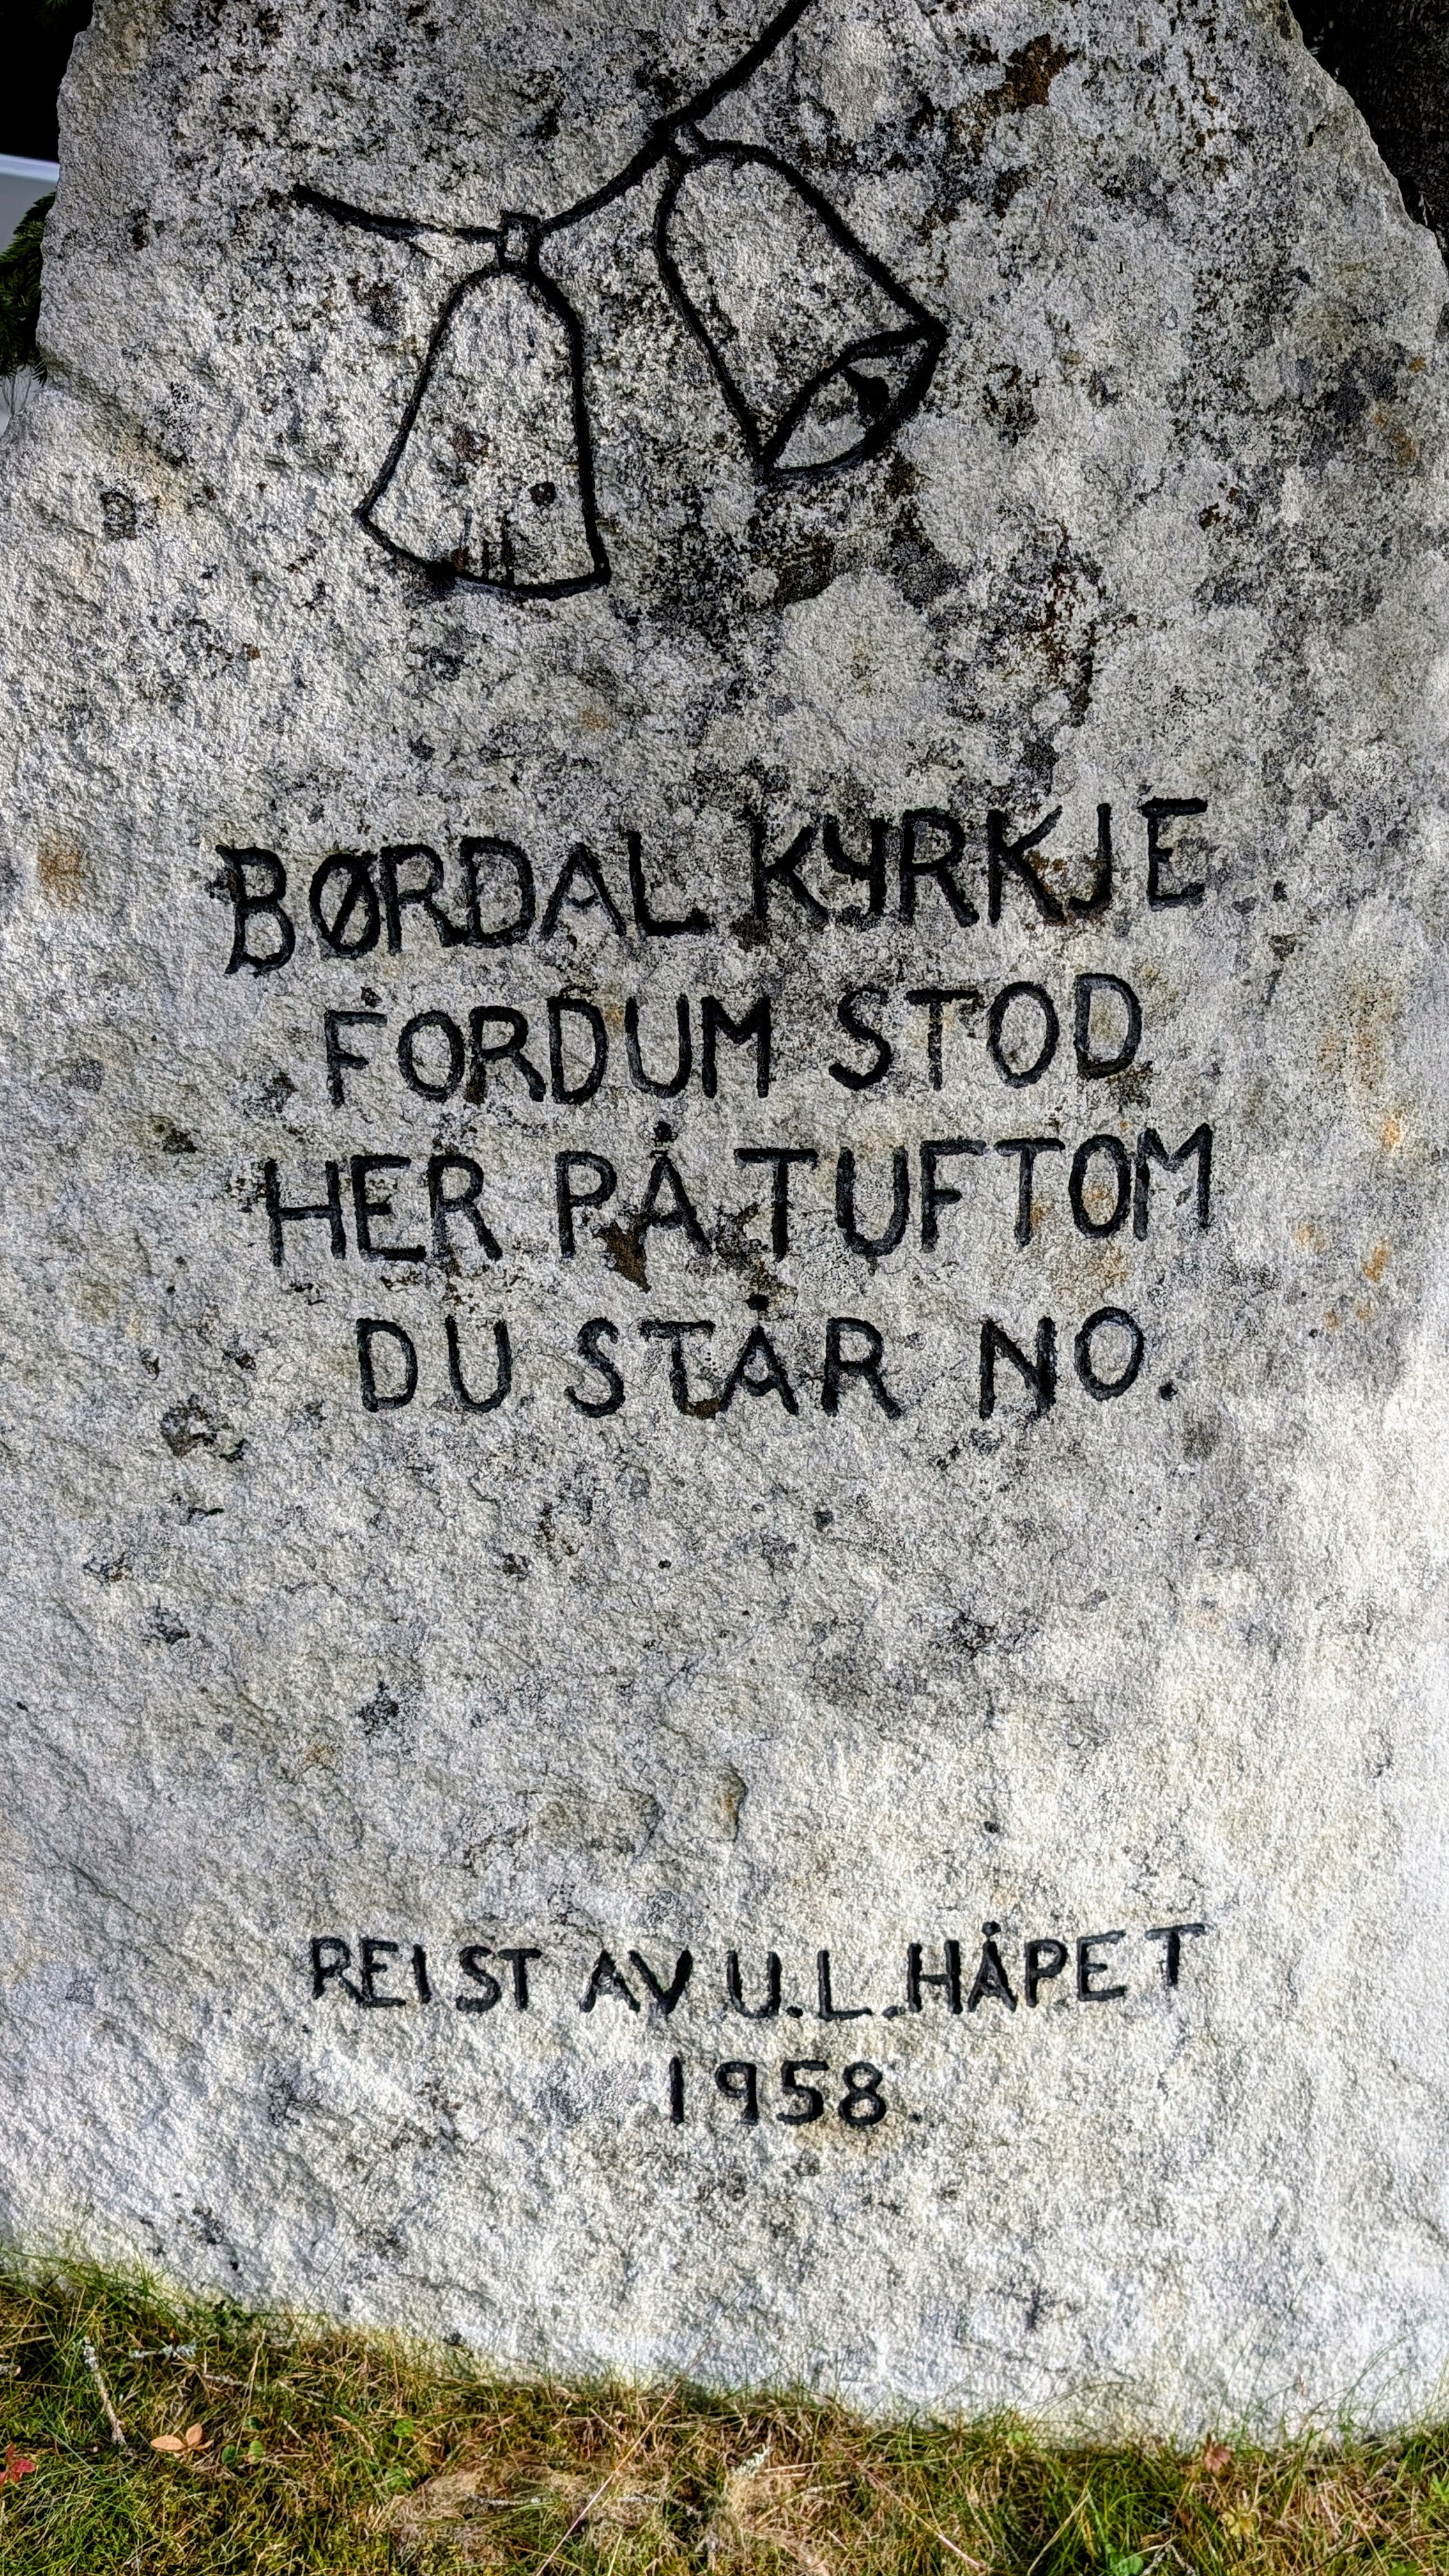 BØRDAL KYRKJE
FORDUM STOD
HER PÅ TUFTOM
DU STÅR NO.
REIST AV U.L. HÅPET
1958.